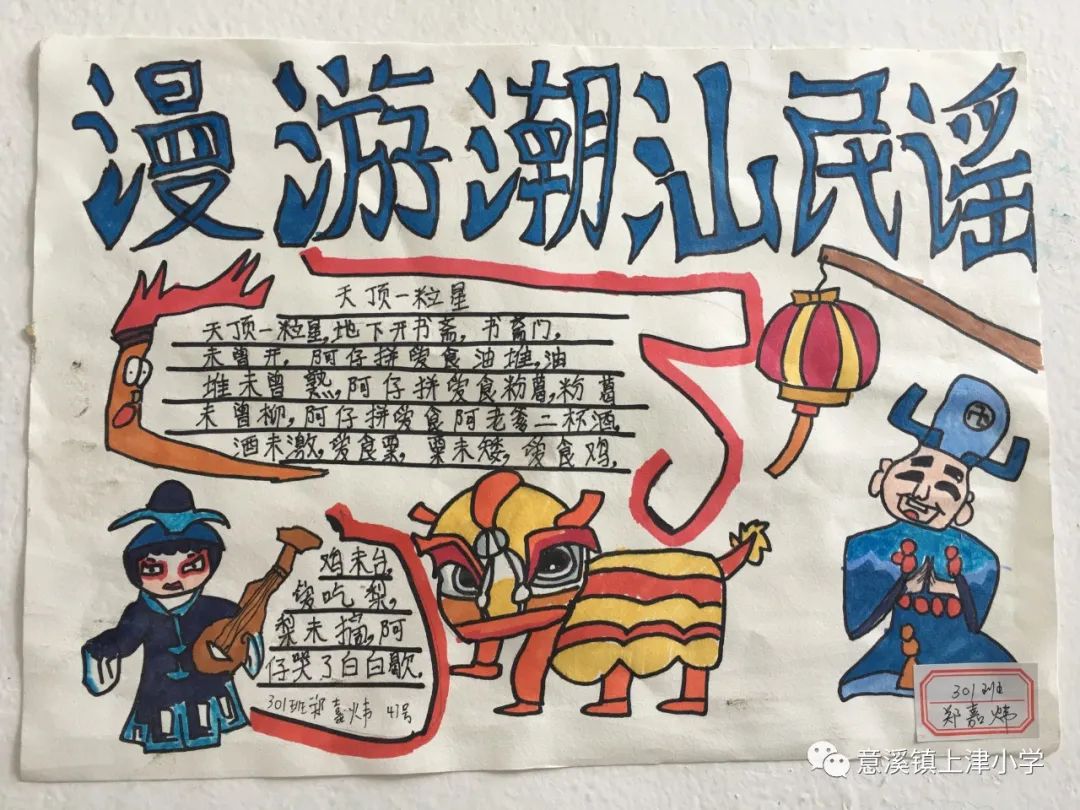 漫游潮汕民谣
天顶一粒星
天顶一粒星,地下开书斋,书斋门,
未曾开,阿仔拼爱食油堆,油
堆未曾熟,阿仔拼爱食粉葛,粉葛
未曾柳,阿仔拼爱食阿老爹二杯酒,
酒未激,爱食粟,粟未矮,爱食鸡,
鸡未台,
爱吃梨,
梨未摘,阿
仔哭了白白歇.
301班郑嘉炜 41号
301班
郑嘉炜
意溪镇上津小学